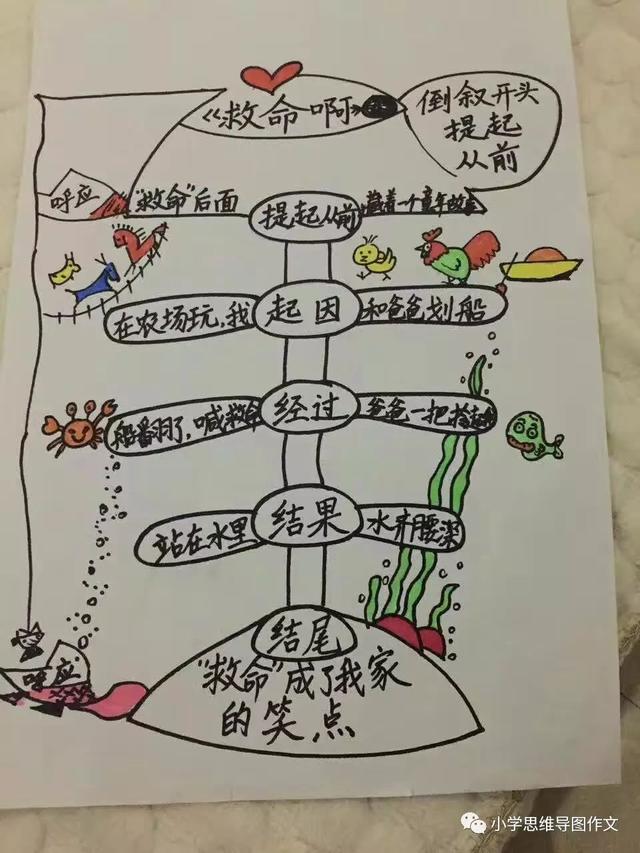 《救命啊》
倒叙开头
提起
从前
呼应
"救命"后面
提起从前
藏着一个童年故事
在农场玩，我
起因
和爸爸划船
船翻了，喊救命
经过
爸爸一把拎起我
站在水里
结果
水齐腰深
结尾
呼应
"救命"成了我家
的笑点
小学思维导图作文